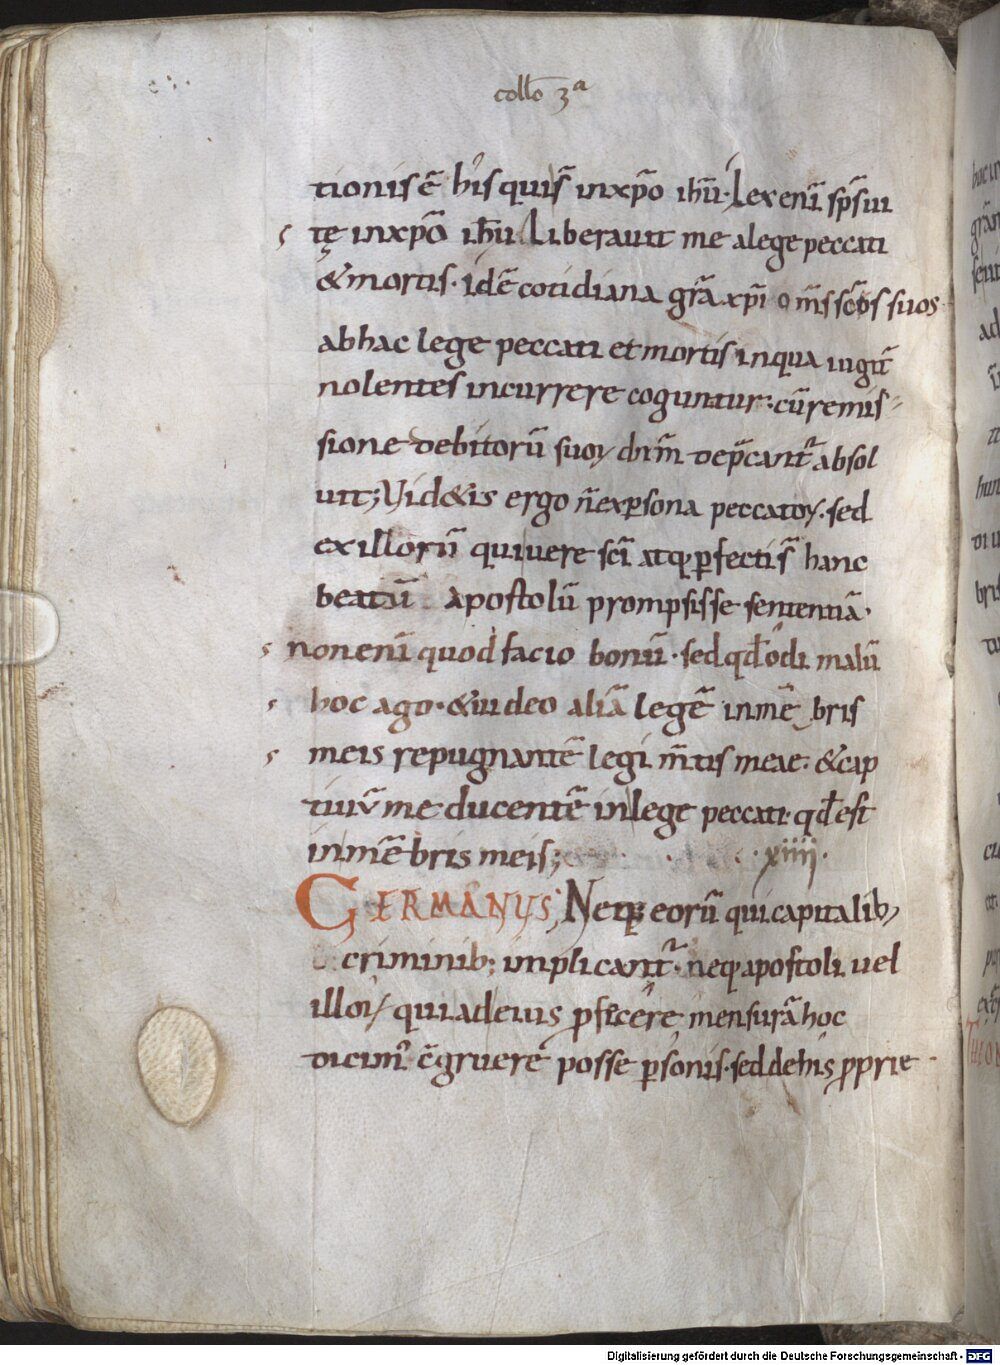 collo̅ 3ᵃ
tionis ē his qui s̄ in xp̄o ihū· Lex eni̅ sp̄s ui
tę in xp̄o ihū Liberauit me a lege peccati
& mortis· idē cotidiana gr̄a xp̄i om̄s sc̄os suos
ab hac lege peccati et mortis in qua iugit̄
nolentes incurrere coguntur· cū remis
sione debitorū suoꝝ dn̄m dep̄cant᷑ absol
uit; Vid&is ergo n̄ ex ꝑsona peccatoꝝ· sed
ex illorū qui uere sc̄i atq; ꝑfecti s̄ hanc
beatū apostolū prompsisse sententiā·
non eni̅ quod facio bonū· sed qd̄ odi malū
hoc ago· & iudeo aliā legē in mē bris
meis repugnantē legi m̄tis meae· & cap
tiuū me ducentē in lege peccati· qd̄ est
in mē bris meis; ·xiiii·
GERMANUS; Neq; eorū qui capitalib;
criminib; implicant᷑· neq; apostoli uel
illoꝝ qui ad eius ꝑfecere mensurā hoc
dicim᷑ c̄gruere posse ꝑsonis· sed de his ꝓprie
Digitalisierung gefördert durch die Deutsche Forschungsgemeinschaft - DFG